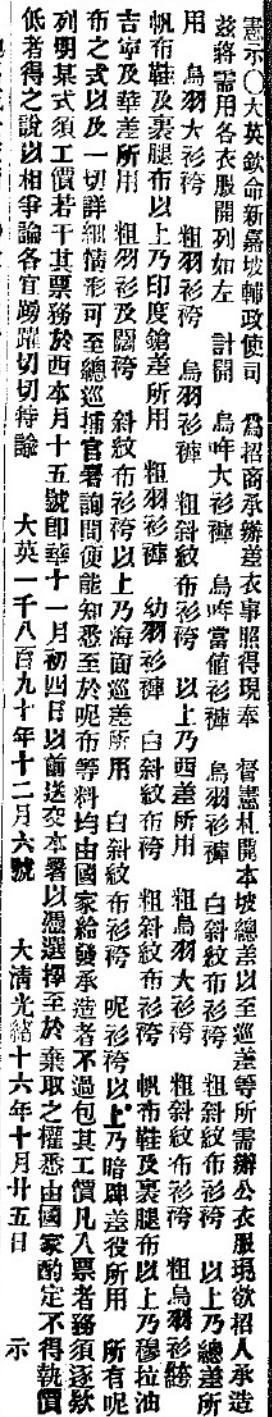 憲示○大英欽命新嘉坡輔政使司　爲招商承辦差衣事照得現奉　督憲札開本坡總差以至巡差等所需辦公衣服現欲招人承造
茲將需用各衣服開列如左　計開　烏哔大衫褲　烏哔當值衫褲　烏羽衫褲　白斜紋布衫袴　粗斜紋布衫袴　以上乃總差所
用　烏羽大衫袴　粗羽衫袴　烏羽衫褲　粗斜紋布衫袴　以上乃西差所用　粗烏羽大衫袴　粗斜紋布衫袴　粗烏羽衫
帆布鞋及裹腿布以上乃印度鎗差所用　粗羽衫褲　幼羽衫褲　白斜紋布袴　粗斜紋布衫袴　帆布鞋及裹腿布以上乃穆拉油
吉寧及華差所用　粗羽衫及闊袴　斜紋布衫袴以上乃海面巡差所用　白斜紋布衫袴　呢衫袴以上乃暗牌差役所用　所有呢
布之式以及一切詳細情形可至總巡捕官署詢問便能知悉至於呢布等料均由國家給發承造者不過包其工價凡入票者務須逐欵
列明某式須工價若干其票務於西本月十五號即華十一月初四日以前送交本署以憑選擇至於棄取之權悉由國家酌定不得執價
低者得之說以相爭論各宜踴躍切切特諭　　大英一千八百九十年十二月六號　　大清光緒十六年十月廿五日　　示